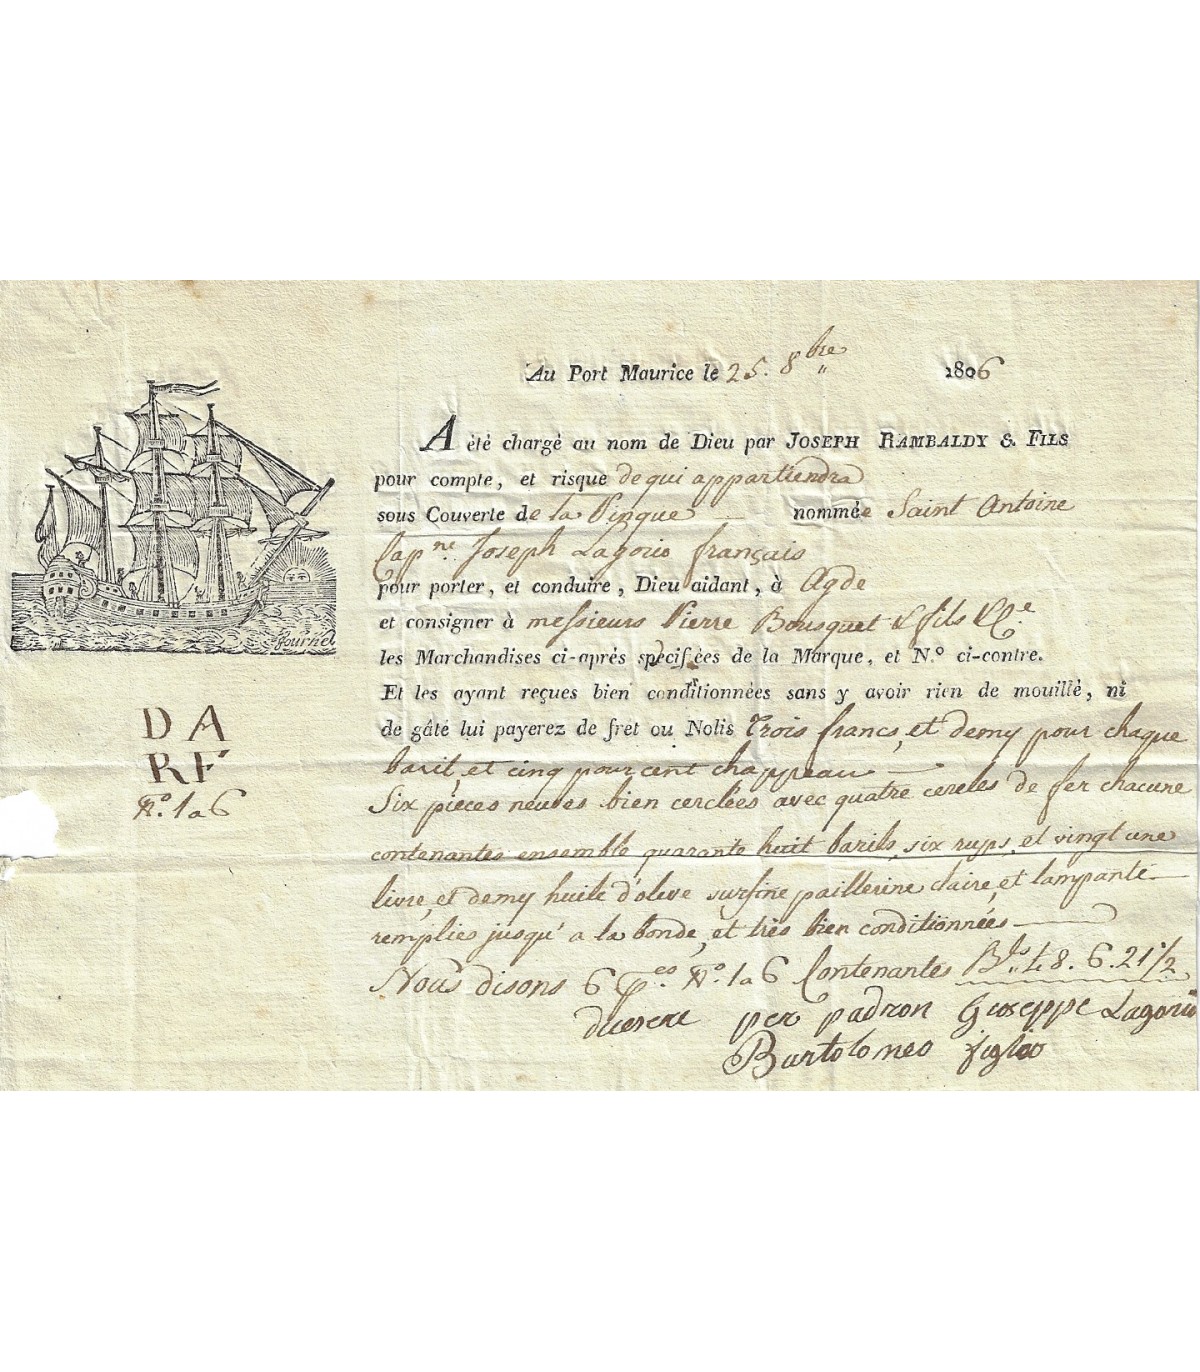 Au Port Maurice le 25. 8bre 1806
A été chargé au nom de Dieu par JOSEPH RAMBALDY & FILS
pour compte, et risque de qui appartiendra
sous Couverte de la Pinque nommée Saint Antoine
Capne. Joseph Lagorio français
pour porter, et conduire, Dieu aidant, à Agde
et consigner à messieurs Pierre Bousquet & fils & Ce.
les Marchandises ci-aprés spécifiées de la Marque, et N.º ci-contre.
Et les ayant reçues bien conditionnées sans y avoir rien de mouillé, ni
de gâté lui payerez de fret ou Nolis Trois francs, et demy pour chaque
baril, et cinq pour cent chappeau
Six pièces neuves bien cerclées avec quatre cercles de fer chacune
contenantes ensemble quarante huit barils, six rups, et vingt une
livre, et demy huile d'olive surfine paillerine claire, et lampante
remplies jusqu'a la bonde, et très bien conditionnées
Nous disons 6 pces. Nº. 1 a 6 Contenantes Bls. 48. 6. 21 1/2
per padron Giuseppe Lagorio
Bartolomeo figlio
fournel
D A
R F
Nº. 1 a 6